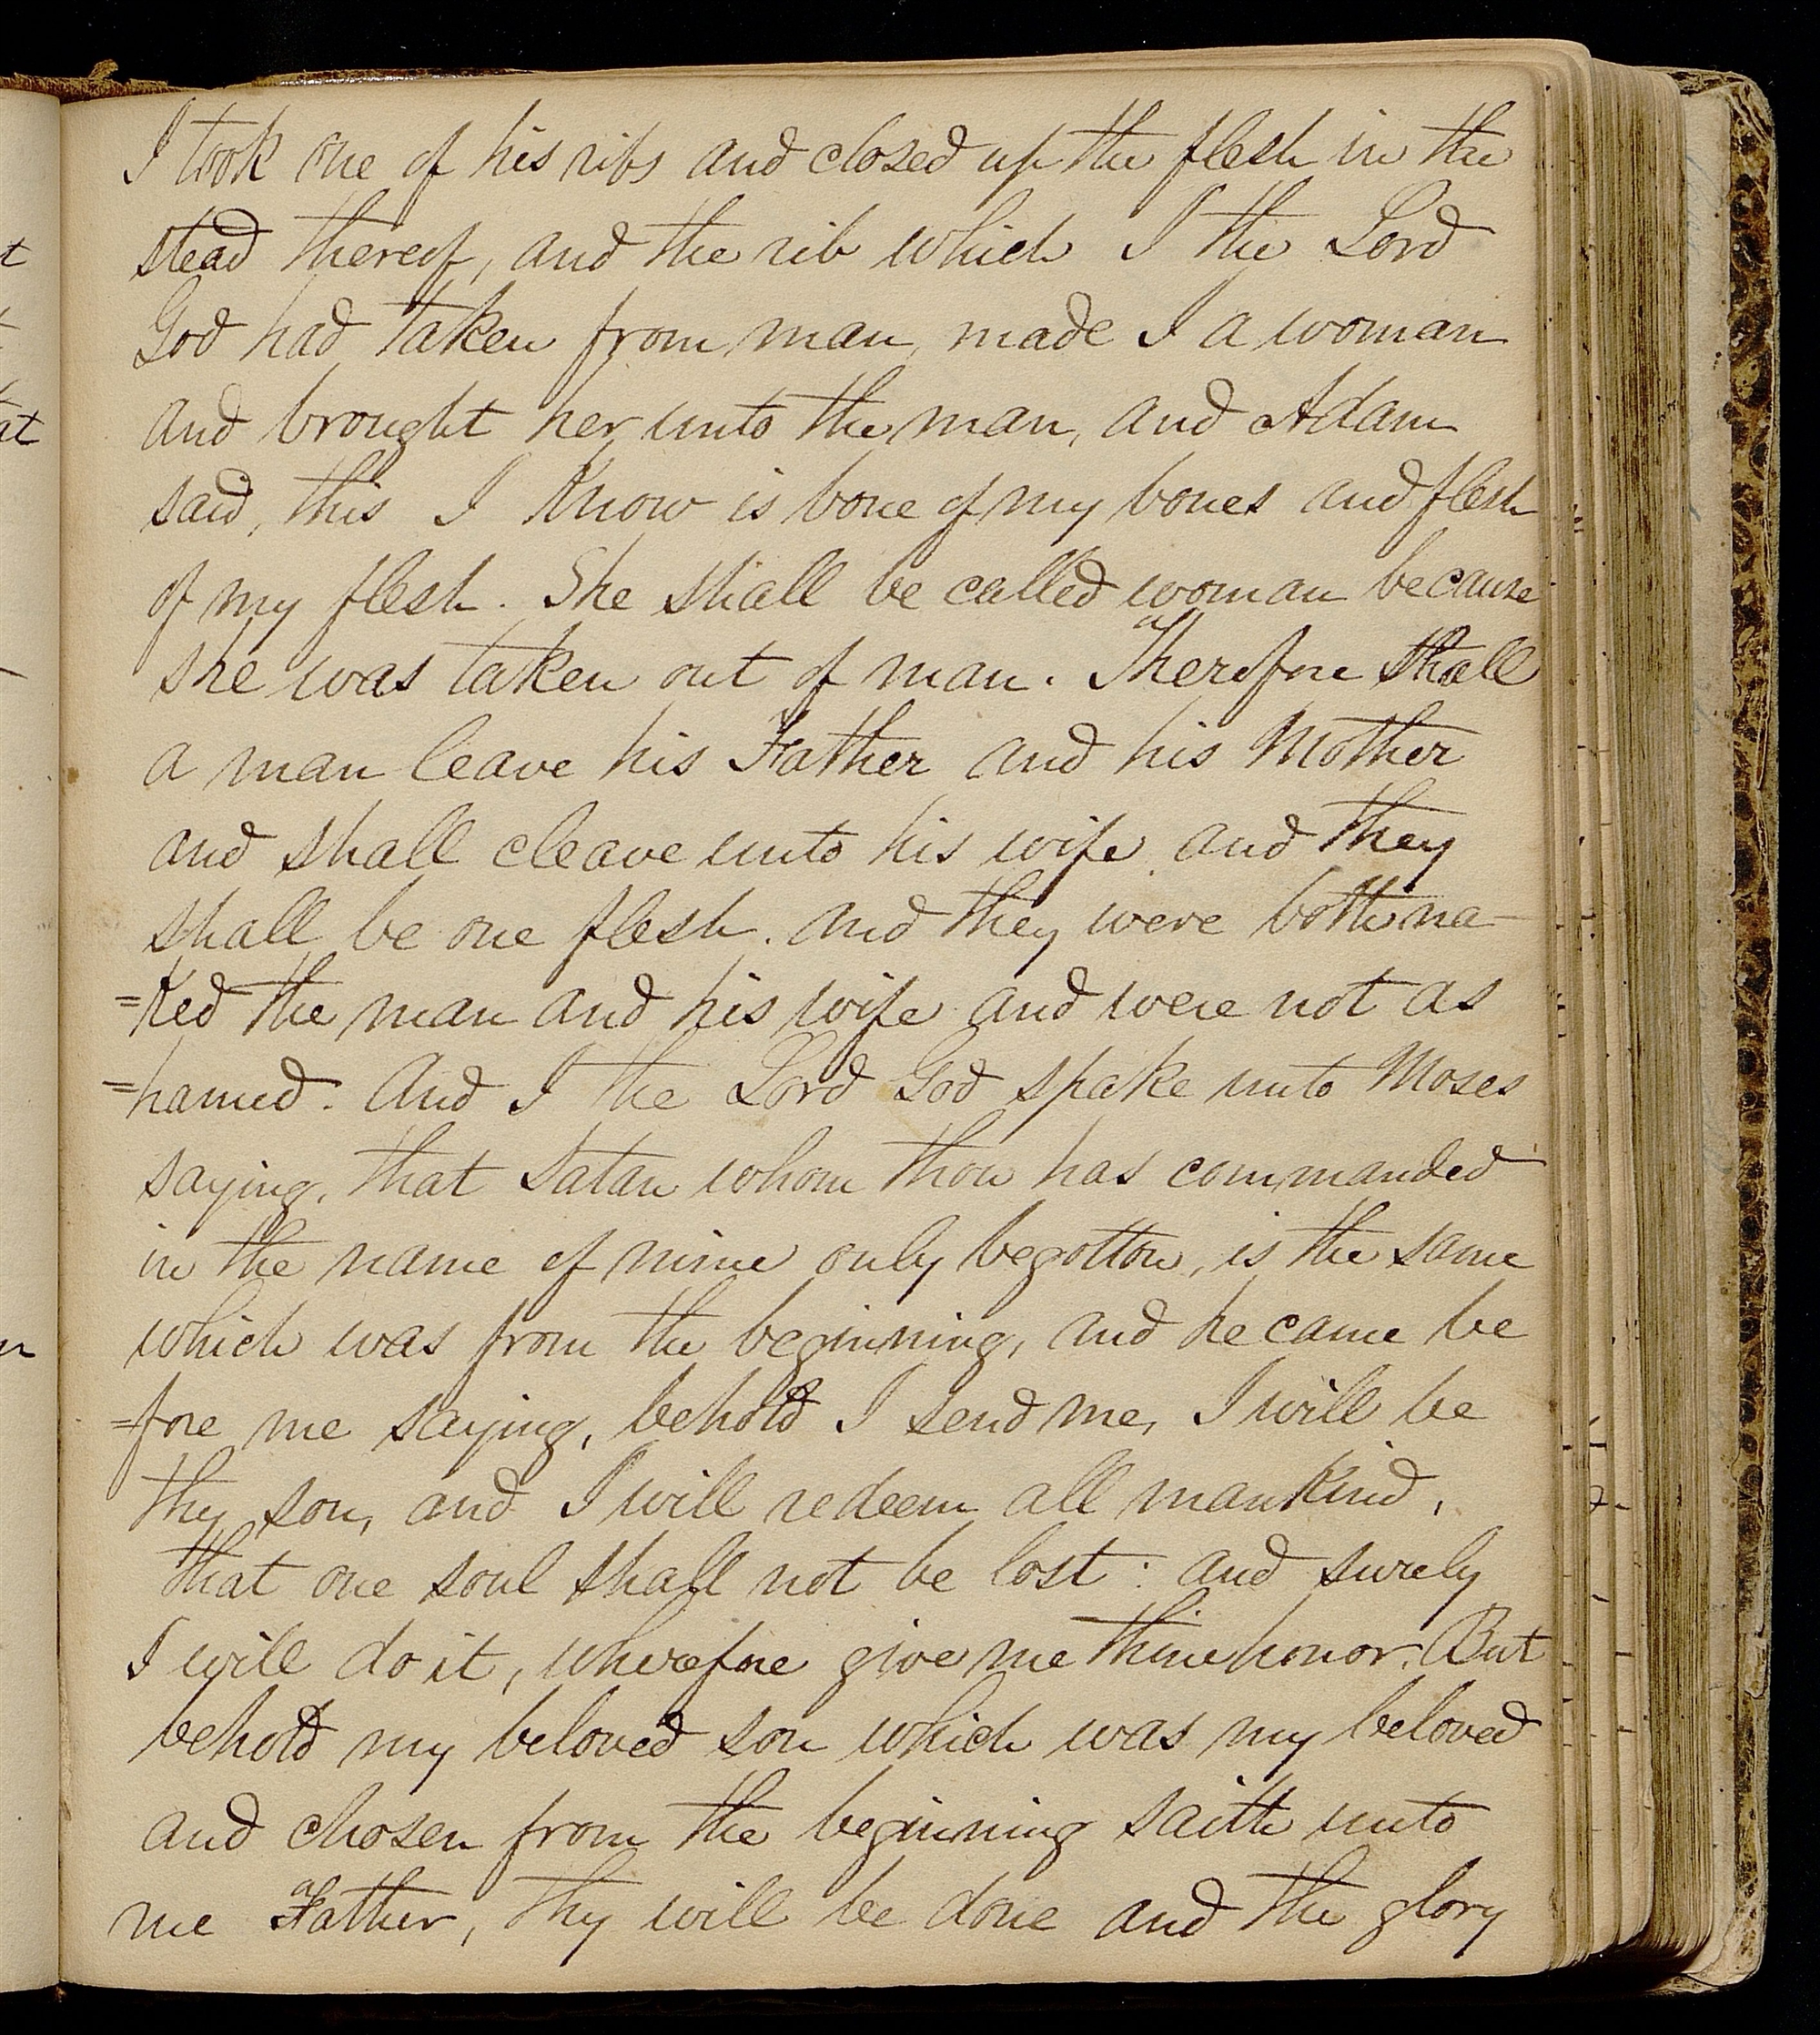 I took one of his ribs and closed up the flesh in the
stead thereof, and the rib which I the Lord
God had taken from man, made I a woman
and brought her unto the man, and Adam
said, this I know is bone of my bones and flesh
of my flesh. She shall be called woman because
she was taken out of man. Therefore shall
a man leave his Father and his Mother
and shall cleave unto his wife and they
shall be one flesh. and they were both na-
=ked the man and his wife and were not as
=hamed. And I the Lord God spake unto Moses
saying, that Satan whom thou has commanded
in the name of mine only begotton, is the same
which was from the beginning, and he came be
=fore me saying, behold I send me, I will be
thy son, and I will redeem all mankind,
that one soul shall not be lost: and surely
I will do it, wherefore give me thine honor. But
behold my beloved son which was my beloved
and chosen from the beginning saith unto
me Father, thy will be done and the glory